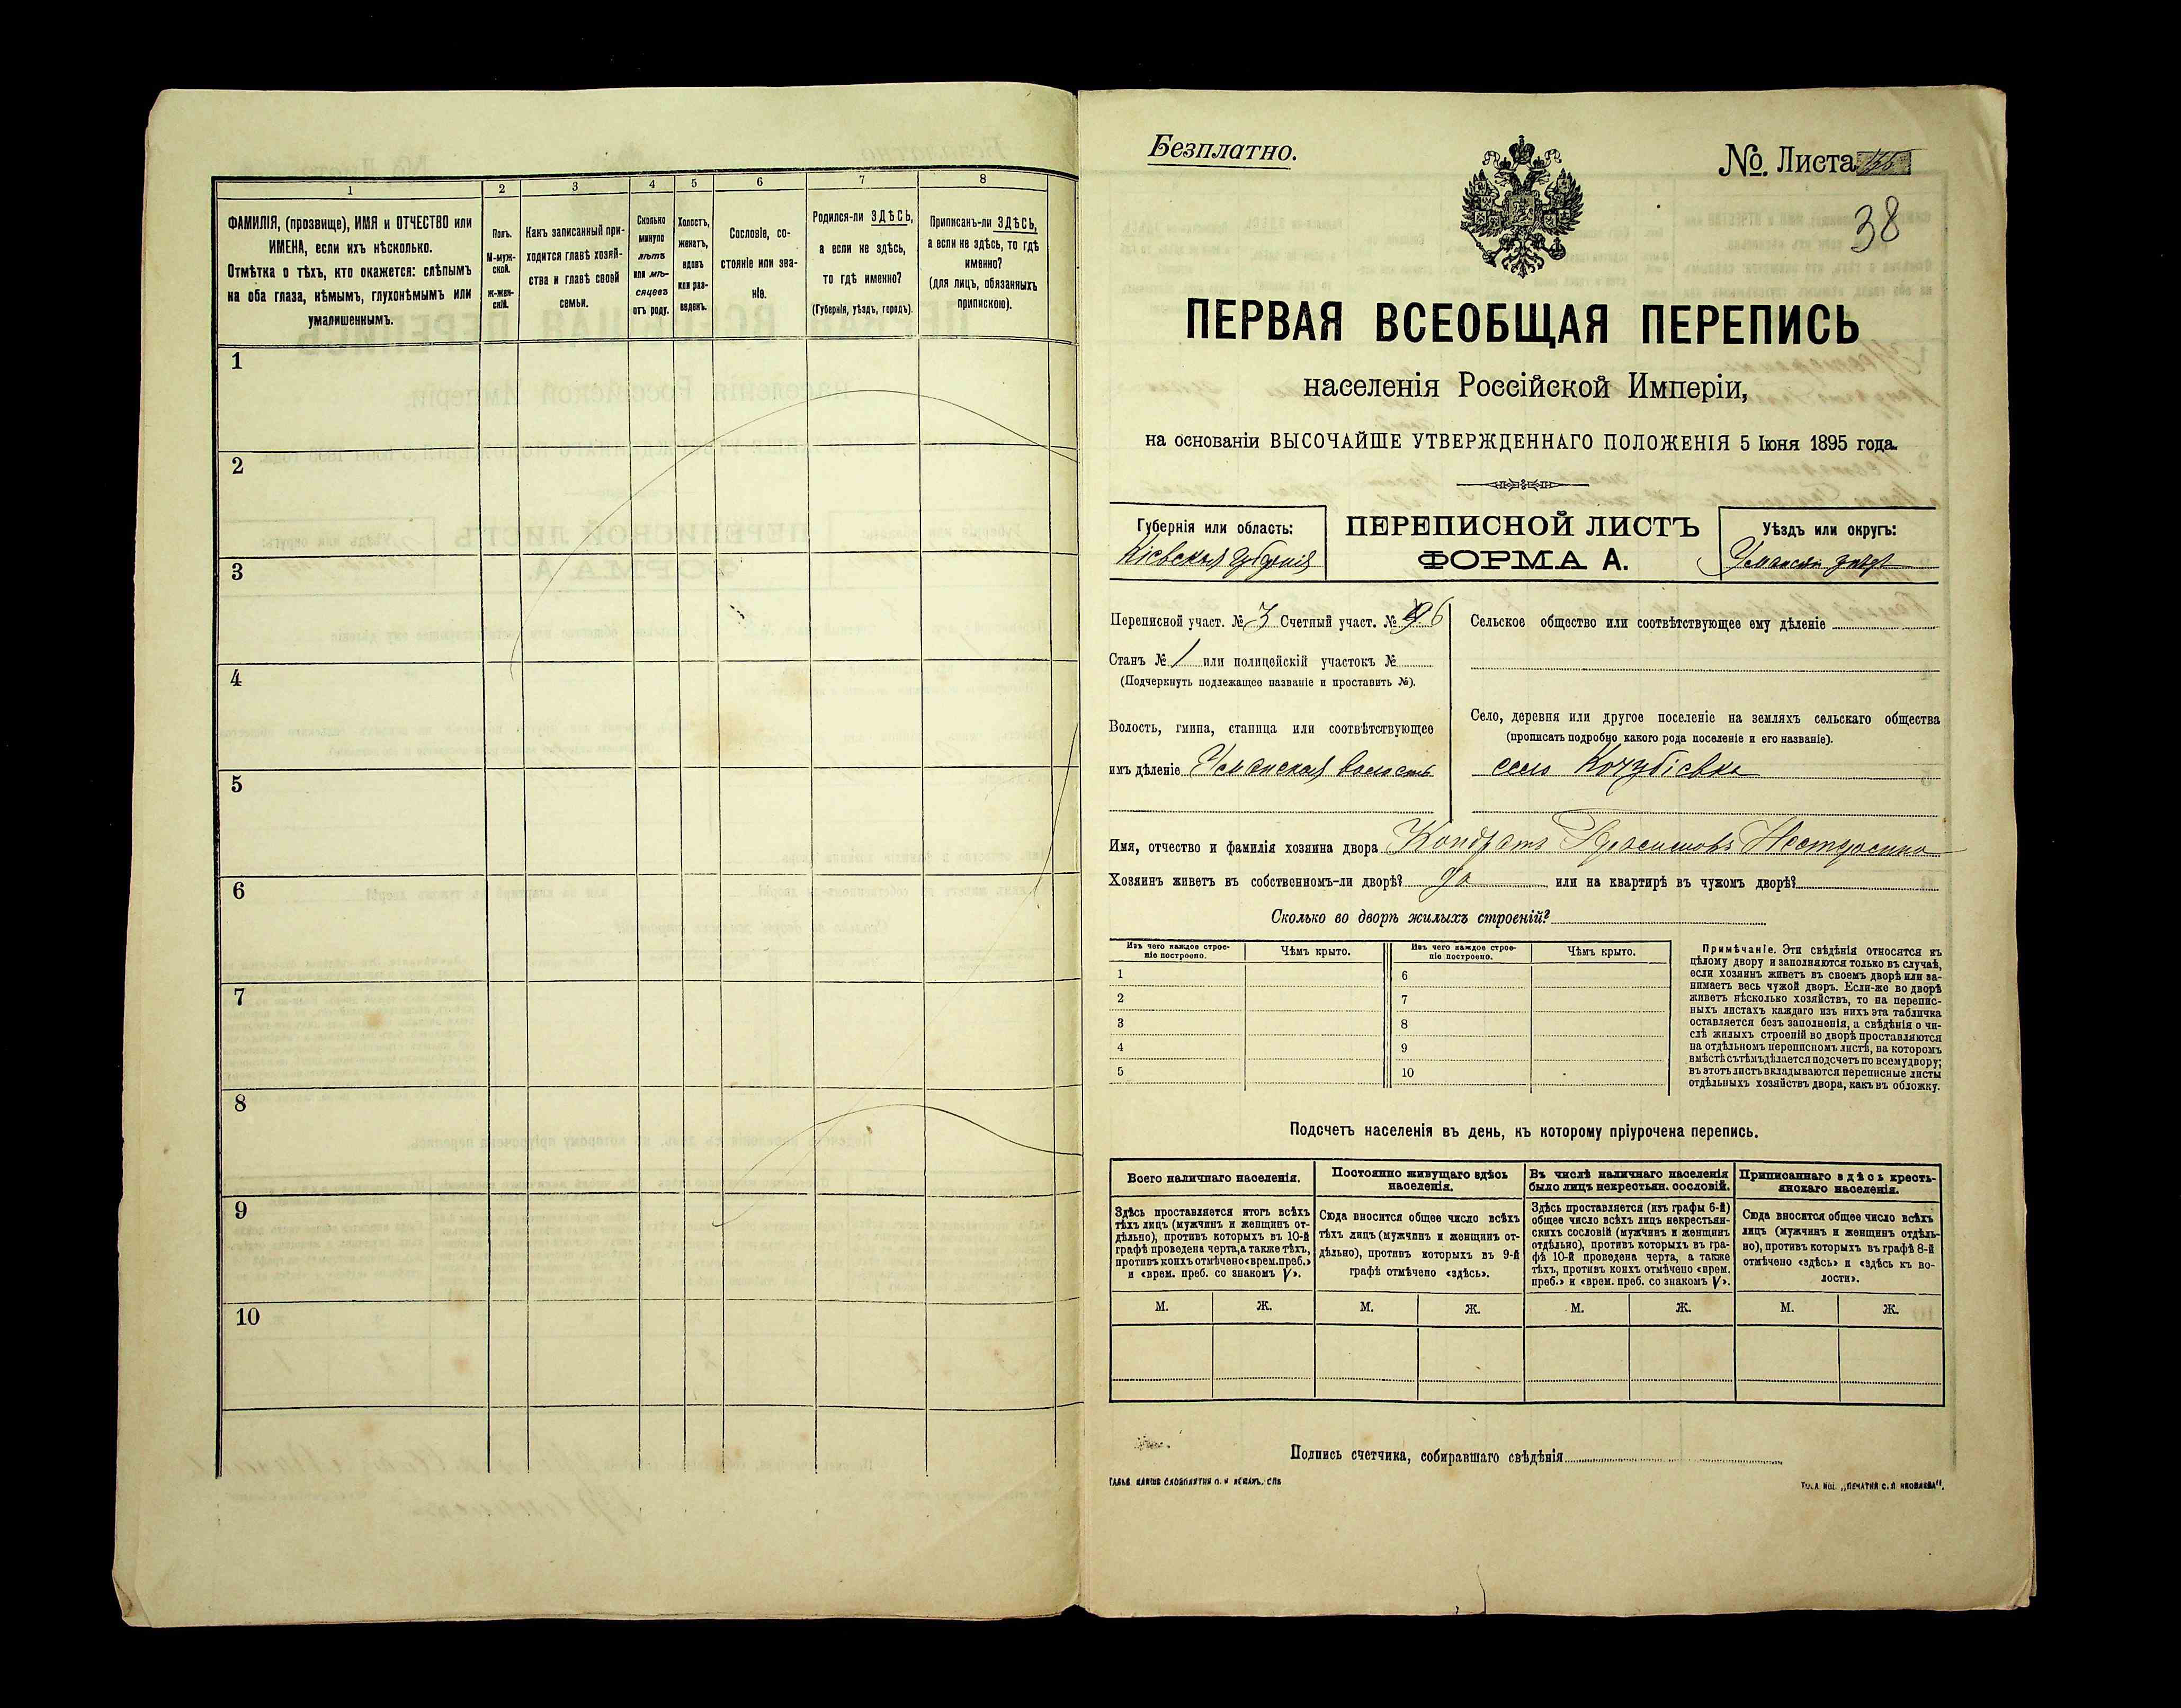 1
2
3
4
5
6
7
8
ФАМИЛІЯ, (прозвище), ИМЯ и ОТЧЕСТВО или
ИМЕНА, если ихъ нѣсколько.
Отмѣтка о тѣхъ, кто окажется: слѣпымъ
на оба глаза, нѣмымъ, глухонѣмымъ или
умалишеннымъ.
Полъ.
М-муж-
ской.
ж-жен-
скій.
Какъ записанный при-
ходится главѣ хозяй-
ства и главѣ своей
семьи.
Сколько
минуло
лѣтъ
или мѣ-
сяцевъ
отъ роду.
Холостъ,
женатъ,
вдовъ
или раз-
веденъ.
Сословіе, со-
стояніе или зва-
ніе.
Родился-ли ЗДѢСЬ,
а если не здѣсь,
то гдѣ именно?
(Губернія, уѣздъ, городъ).
Приписанъ-ли ЗДѢСЬ,
а если не здѣсь, то гдѣ
именно?
(для лицъ, обязанныхъ
припискою).
1
2
3
4
5
6
7
8
9
10
Безплатно.
№. Листа
38
ПЕРВАЯ ВСЕОБЩАЯ ПЕРЕПИСЬ
населенія Россійской Имперіи,
на основаніи ВЫСОЧАЙШЕ УТВЕРЖДЕННАГО ПОЛОЖЕНІЯ 5 Іюня 1895 года.
Губернія или область:
Кіевская губернія
ПЕРЕПИСНОЙ ЛИСТЪ
ФОРМА А.
Уѣздъ или округъ:
Уманскій уѣздъ
Переписной участ. № 3 Счетный участ. № 6
Станъ № 1 или полицейскій участокъ №
(Подчеркнуть подлежащее названіе и проставить №).
Волость, гмина, станица или соотвѣтствующее
имъ дѣленіе Уманская волость
Сельское общество или соотвѣтствующее ему дѣленіе
Село, деревня или другое поселеніе на земляхъ сельскаго общества
(прописать подробно какого рода поселеніе и его названіе).
село Кочубіевка
Имя, отчество и фамилія хозяина двора Кондратъ Герасимовъ Нестеренко
Хозяинъ живетъ въ собственномъ-ли дворѣ? да или на квартирѣ въ чужомъ дворѣ?
Сколько во дворѣ жилыхъ строеній?
Изъ чего каждое строе-
ніе построено.
Чѣмъ крыто.
Изъ чего каждое строе-
ніе построено.
Чѣмъ крыто.
1
2
3
4
5
6
7
8
9
10
Примѣчаніе. Эти свѣдѣнія относятся къ
цѣлому двору и заполняются только въ случаѣ,
если хозяинъ живетъ въ своемъ дворѣ или за-
нимаетъ весь чужой дворъ. Если-же во дворѣ
живетъ нѣсколько хозяйствъ, то на перепис-
ныхъ листахъ каждаго изъ нихъ эта табличка
оставляется безъ заполненія, а свѣдѣнія о чи-
слѣ жилыхъ строеній во дворѣ проставляются
на отдѣльномъ переписномъ листѣ, на которомъ
вмѣстѣ съ тѣмъ дѣлается подсчетъ по всему двору;
въ этотъ листъ вкладываются переписные листы
отдѣльныхъ хозяйствъ двора, какъ въ обложку.
Подсчетъ населенія въ день, къ которому пріурочена перепись.
Всего наличнаго населенія.
Постоянно живущаго здѣсь
населенія.
Въ числѣ наличнаго населенія
было лицъ некрестьян. сословій.
Приписаннаго здѣсь кресть-
янскаго населенія.
Здѣсь проставляется итогъ всѣхъ
тѣхъ лицъ (мужчинъ и женщинъ от-
дѣльно), противъ которыхъ въ 10-й
графѣ проведена черта, а также тѣхъ,
противъ коихъ отмѣчено «врем. преб.»
и «врем. преб. со знакомъ V».
Сюда вносится общее число всѣхъ
тѣхъ лицъ (мужчинъ и женщинъ от-
дѣльно), противъ которыхъ въ 9-й
графѣ отмѣчено «здѣсь».
Здѣсь проставляется (изъ графы 6-й)
общее число всѣхъ лицъ некрестьян-
скихъ сословій (мужчинъ и женщинъ
отдѣльно), противъ которыхъ въ гра-
фѣ 10-й проведена черта, а также
тѣхъ, противъ коихъ отмѣчено «врем.
преб.» и «врем. преб. со знакомъ V».
Сюда вносится общее число всѣхъ
лицъ (мужчинъ и женщинъ отдѣль-
но), противъ которыхъ въ графѣ 8-й
отмѣчено «здѣсь» и «здѣсь къ во-
лости».
М. Ж. М. Ж. М. Ж. М. Ж.
Подпись счетчика, собиравшаго свѣдѣнія